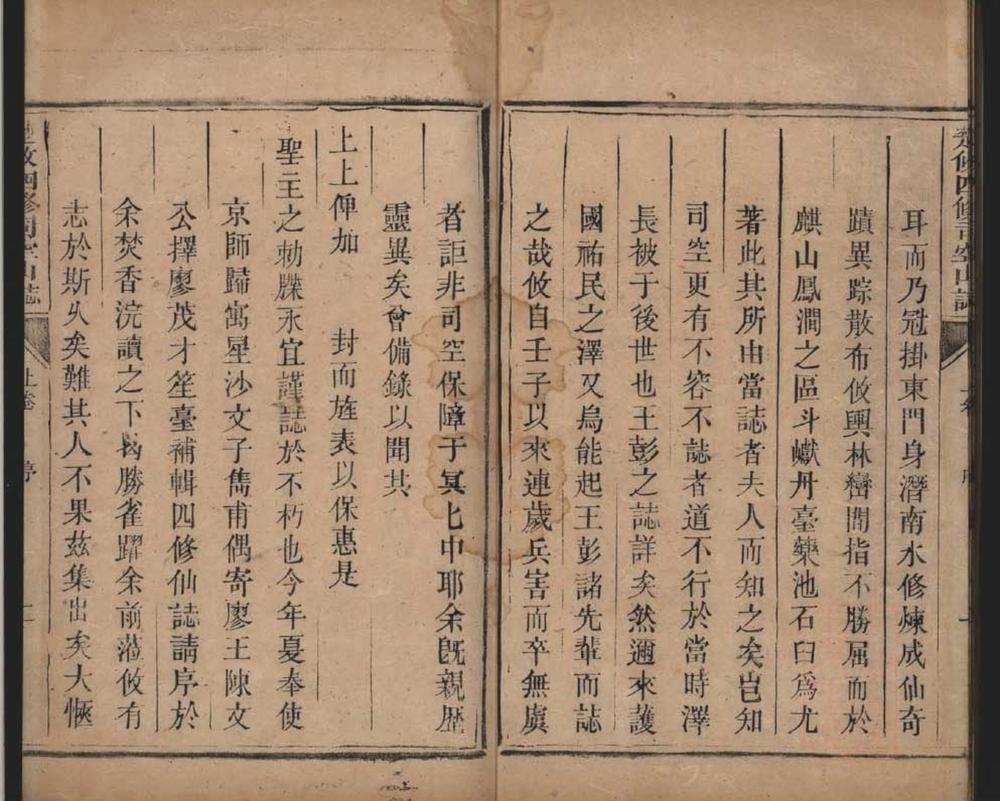 耳而乃冠掛東門身潛南水修煉成仙奇
蹟異踪散布攸輿林巒間指不勝屈而於
麒山鳳澗之區斗巘丹臺藥池石臼爲尤
著此其所由當誌者夫人而知之矣豈知
司空更有不容不誌者道不行於當時澤
長被于後世也王彭之誌詳矣然邇來護
國祐民之澤又烏能起王彭諸先輩而誌
之哉攸自壬子以來連歲兵害而卒無虞
者詎非司空保障于冥匕中耶余旣親歷
靈異矣曾備錄以聞其
上上俾加 封而旌表以保惠是
聖王之勅牒永宜謹誌於不朽也今年夏奉使
京師歸寓星沙文子雋甫偶寄廖王陳文
公擇廖茂才笙臺補輯四修仙誌請序於
余焚香浣讀之下曷勝雀躍余前蒞攸有
志於斯乆矣難其人不果茲集出矣大愜
攸四修司空山誌 上卷 序